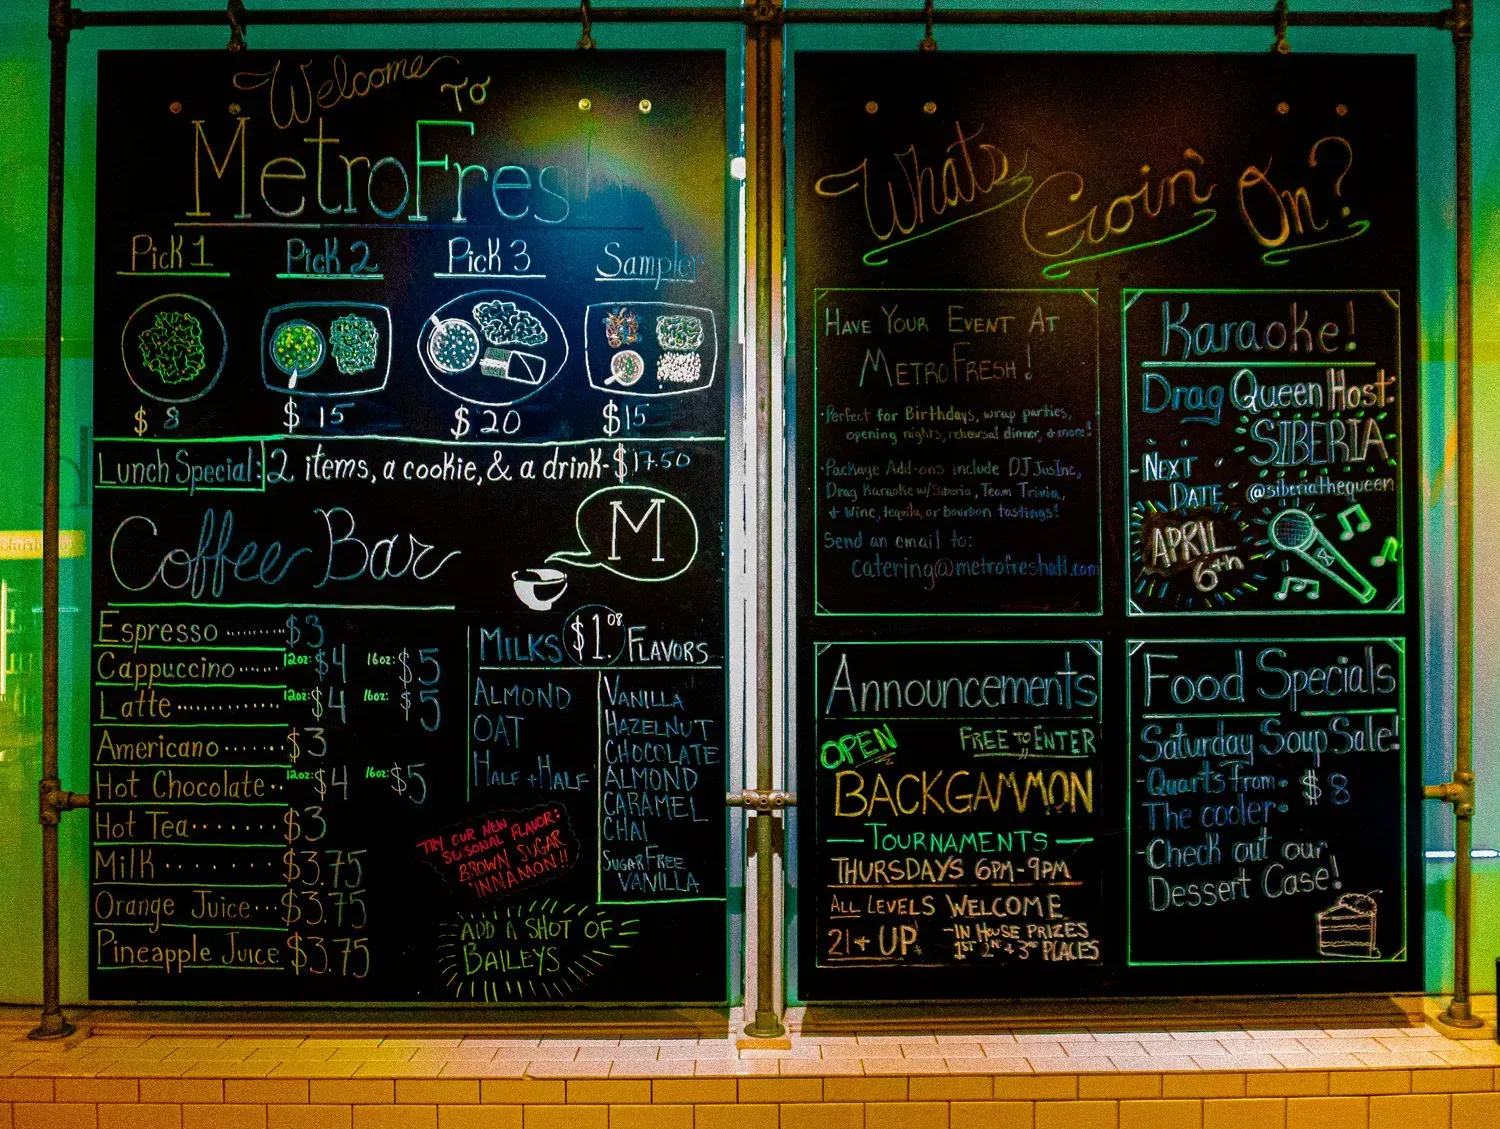 Welcome
To
MetroFresh
Pick 1 Pick 2 Pick 3 Sampler
$ 8 $ 15 $ 20 $15
Lunch Special: 2 items, a cookie, & a drink- $17.50
M
Coffee Bar
Espresso ......... $3
Cappuccino ...... 12oz: $4 16oz: $5
Latte ............ 12oz: $4 16oz: $5
Americano ...... $3
Hot Chocolate .. 12oz: $4 16oz: $5
Hot Tea ....... $3
Milk ....... $3.75
Orange Juice ... $3.75
Pineapple Juice $3.75
Milks $1.00 Flavors
Almond
Oat
Half + Half
Vanilla
Hazelnut
Chocolate
Almond
Caramel
Chai
Sugar Free
Vanilla
Try our new
sesonal flavor:
Brown Sugar
innamon!!
Add a shot of
Baileys
Whats Goin' On?
Have Your Event At
MetroFresh!
·Perfect for Birthdays, wrap parties,
opening nights, rehearsal dinner, & more!
·Package Add-ons include DJ JusInc,
Drag Karaoke w/Siberia, Team Trivia,
+ Wine, tequila, or bourbon tastings!
Send an email to:
catering@metrofreshatl.com
Karaoke!
Drag Queen Host:
SIBERIA
@siberiathequeen
-Next
Date
April
6th
Announcements
OPEN Free to Enter
BACKGAMMON
Tournaments
Thursdays 6pm-9pm
All levels welcome
21+ up
-In House Prizes
1st 2nd + 3rd places
Food Specials
Saturday Soup Sale!
-Quarts from $8
The cooler
-Check out our
Dessert Case!